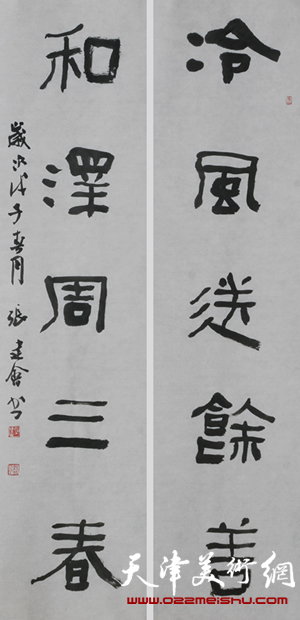 冷風送餘善
和澤周三春
歲次戊子春月 張建會書
天津美術網
www.022meishu.com